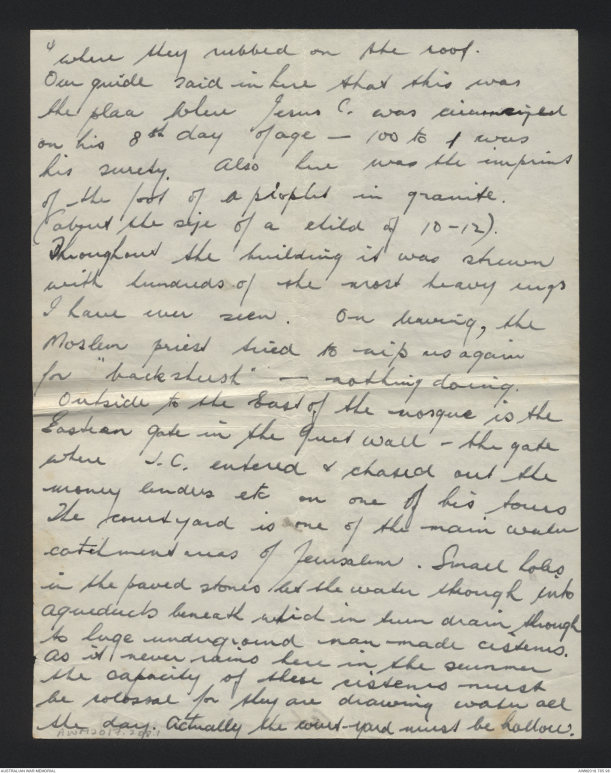 where they rubbed on the roof.
Our guide said in here that this was
the place where Jesus C. was circumcized
on his 8th day of age — 100 to 1 was
his surety. Also here was the imprint
of the foot of a prophet in granite.
(about the size of a child of 10-12).
Throughout the building it was strewn
with hundreds of the most heavy rugs
I have ever seen. On leaving, the
Moslem priest tried to nip us again
for "backsheesh" — nothing doing.
Outside to the East of the mosque is the
Eastern gate in the great wall - the gate
where J.C. entered & chased out the
money lenders etc on one of his tours
The courtyard is one of the main water
catchment areas of Jerusalem. Small holes
in the paved stones let the water through into
aqueducts beneath which in turn drain through
to huge underground man-made cisterns.
As it never rains here in the summer
the capacity of these cisterns must
be colossal for they are drawing water all
the day. Actually the court-yard must be hollow.
AUSTRALIAN WAR MEMORIAL